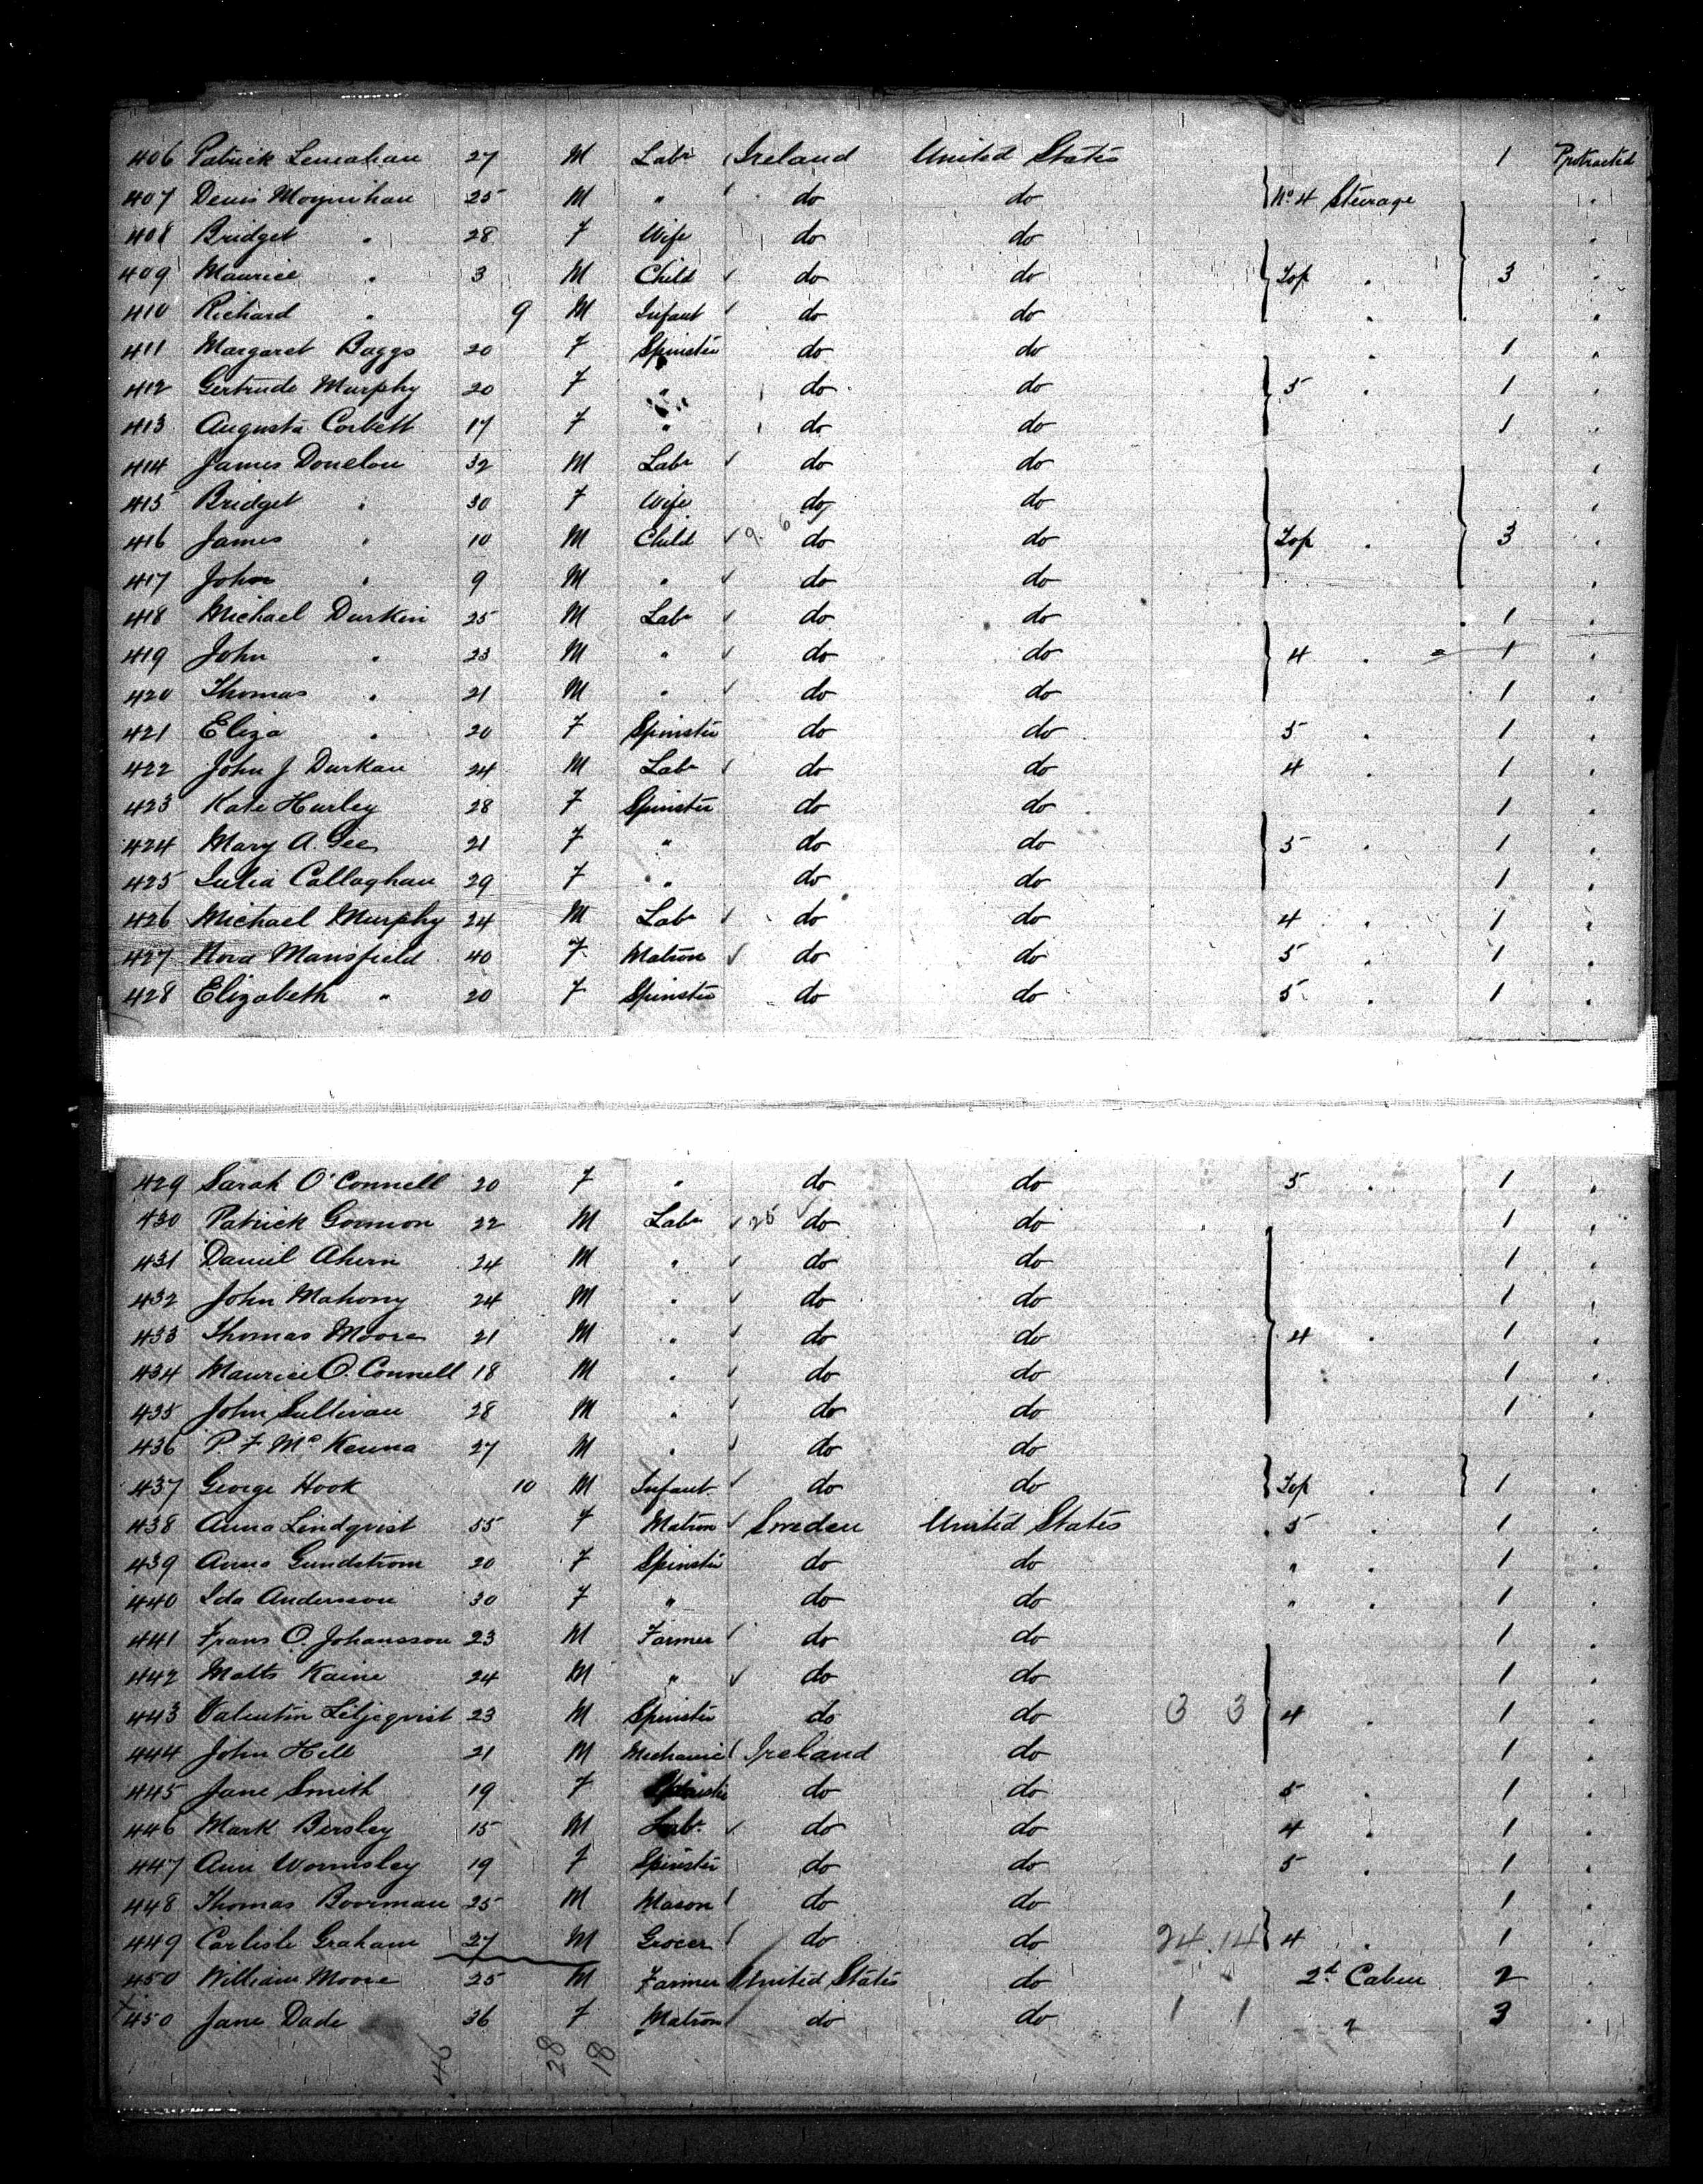 406 Patrick Lenahan 27 M Labr Ireland United States 1 Protracted
407 Denis Moynihan 25 M " do do No 4 Steerage "
408 Bridget " 28 F Wife do do "
409 Maurice " 3 M Child do do Top " 3 "
410 Richard " 9 M Infant do do " "
411 Margaret Baggs 20 F Spinster do do " 1 "
412 Gertrude Murphy 20 F " do do 5 " 1 "
413 Augusta Corbett 17 F " do do 1 "
414 James Donelon 32 M Labr do do "
415 Bridget " 30 F Wife do do "
416 James " 10 M Child 9 6 do do Top " 3 "
417 John " 9 M " do do "
418 Michael Durkin 25 M Labr do do 1 "
419 John " 23 M " do do 4 " 1 "
420 Thomas " 21 M " do do 1 "
421 Eliza " 20 F Spinster do do 5 " 1 "
422 John J Durkan 24 M Labr do do 4 " 1 "
423 Kate Hurley 28 F Spinster do do 1 "
424 Mary A. Gee 21 F " do do 5 " 1 "
425 Julia Callaghan 29 F " do do 1 "
426 Michael Murphy 24 M Labr do do 4 " 1 "
427 Nora Mansfield 40 F Matron do do 5 " 1 "
428 Elizabeth " 20 F Spinster do do 5 " 1 "
429 Sarah O'Connell 20 F " do do 5 " 1 "
430 Patrick Gormon 22 M Labr 25 do do 1 "
431 Daniel Ahern 24 M " do do 1 "
432 John Mahony 24 M " do do 1 "
433 Thomas Moore 21 M " do do 4 " 1 "
434 Maurice O. Connell 18 M " do do 1 "
435 John Sullivan 28 M " do do 1 "
436 P F McKenna 27 M " do do
437 George Hook 10 M Infant do do Top " 1 "
438 Anna Lindqvist 55 F Matron Sweden United States 5 " 1 "
439 Anna Gundstrom 20 F Spinster do do " " 1 "
440 Ida Anderson 30 F " do do " " 1 "
441 Frans O. Johansson 23 M Farmer do do 1 "
442 Matts Kaine 24 M " do do 1 "
443 Valentin Liljeqvist 23 M Spinster do do 3 3 4 " 1 "
444 John Hill 21 M Mechanic Ireland do 1 "
445 Jane Smith 19 F Spinster do do 5 " 1 "
446 Mark Bersley 15 M Labr do do 4 " 1 "
447 Ann Wormsley 19 F Spinster do do 5 " 1 "
448 Thomas Boorman 25 M Mason do do 1 "
449 Carlisle Graham 27 M Grocer do do 24 14 4 " 1 "
450 William Moore 25 M Farmer United States do 2d Cabin 2 "
450 Jane Dade 36 F Matron do do 1 1 " 3 "
46 28 18